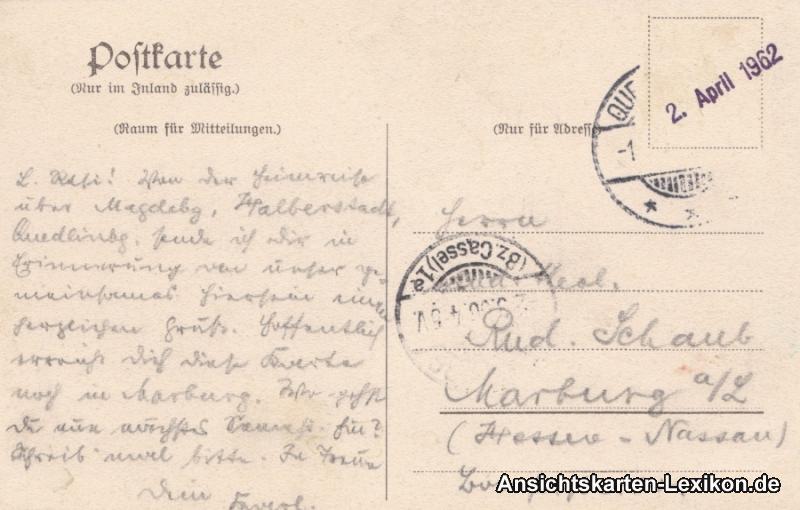 Postkarte
(Nur im Inland zulässig.)
(Raum für Mitteilungen.)
(Nur für Adresse
2. April 1962
QUE
-1
L. Rudi! Von der Heimreise
über Magdebg, Halberstadt,
Quedlinbg. sende ich dir in
Erinnerung an unser ge-
meinsames Hiersein einen
herzlichen Gruß. Hoffentlich
erreicht dich diese Karte
noch in Marburg. Wo gehst
du nun nächstes Semest. hin?
Schreib mal bitte. In Treue
Dein
Herrn
(Bz. Cassel) 1a
Rud. Schaub
Marburg a/L
(Hessen-Nassau)
Ansichtskarten-Lexikon.de